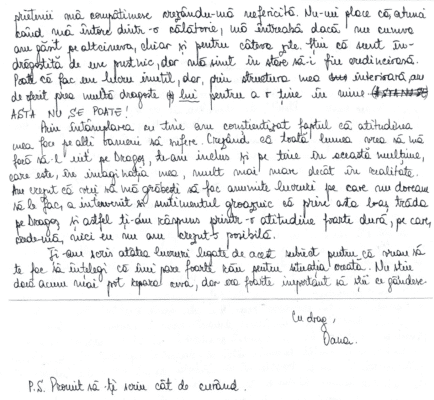 prietenii mă compătimesc crezându-mă nefericită. Nu-mi place că, atunci
când mă întorc dintr-o călătorie, mă întreabă dacă nu cumva
am găsit pe altcineva, chiar și pentru câteva zile. Știu că sunt în-
drăgostită de un puștnic, dar mă simt în stare să-i fiu credincioasă.
Poate că fac un lucru inutil, dar, prin structura mea interioară, am
de oferit prea multă dragoste și lui pentru a o ține în mine
ASTA NU SE POATE!
Prin întâmplarea cu tine am conștientizat faptul că atitudinea
mea face pe alți oameni să sufere. Crezând că toată lumea vrea să mă
facă să-l uit pe Dragoș, te-am inclus și pe tine în această mulțime,
care este, în imaginația mea, mult mai mare decât în realitate.
Am crezut că vrei să mă grăbești să fac anumite lucruri pe care nu doream
să le fac, a intervenit și sentimentul groaznic că prin asta l-aș trăda
pe Dragoș și astfel ți-am răspuns printr-o atitudine foarte dură, pe care,
crede-mă, nici eu nu am crezut-o posibilă.
Ți-am scris atâtea lucruri legate de acest subiect pentru că vreau să
te fac să înțelegi că îmi pare foarte rău pentru situația creată. Nu știu
dacă acum mai pot repara ceva, dar era foarte important să știi ce gândesc.
Cu drag,
Dana.
P.S. Promit să-ți scriu cât de curând.